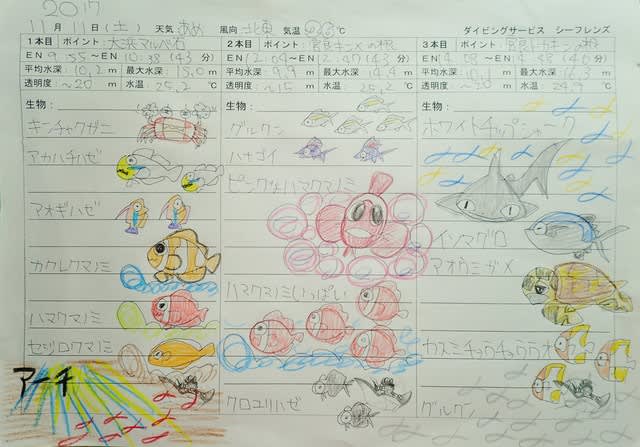 2017
11月 11日(土) 天気 あめ 風向 北東 気温 23℃ ダイビングサービス シーフレンズ
1本目 ポイント: 大浜マルベ石
EN 9:55 〜EN 10:38 (43 分)
平均水深: 10.2 m 最大水深: 15.0 m
透明度: 〜20 m 水温 25.2 ℃
生物:
キンチャクガニ
アカハチハゼ
アオギハゼ
カクレクマノミ
ハマクマノミ
セジロクマノミ
アーチ
2本目 ポイント: 宮良キンメの根
EN 12:04 〜EN 12:47 (43 分)
平均水深: 9.9 m 最大水深: 14.4 m
透明度: 〜15 m 水温 25.2 ℃
生物:
グルクン
ハナゴイ
ピンクハマクマノミ
ハマクマノミいっぱい
クロユリハゼ
3本目 ポイント: 宮良トカキンの根
EN 14:08 〜EN 14:48 (40 分)
平均水深: 10. m 最大水深: 16.3 m
透明度: 〜20 m 水温 24.9 ℃
生物:
ホワイトチップシャーク
イソマグロ
アオウミガメ
カスミチョウチョウウオ
グルクン